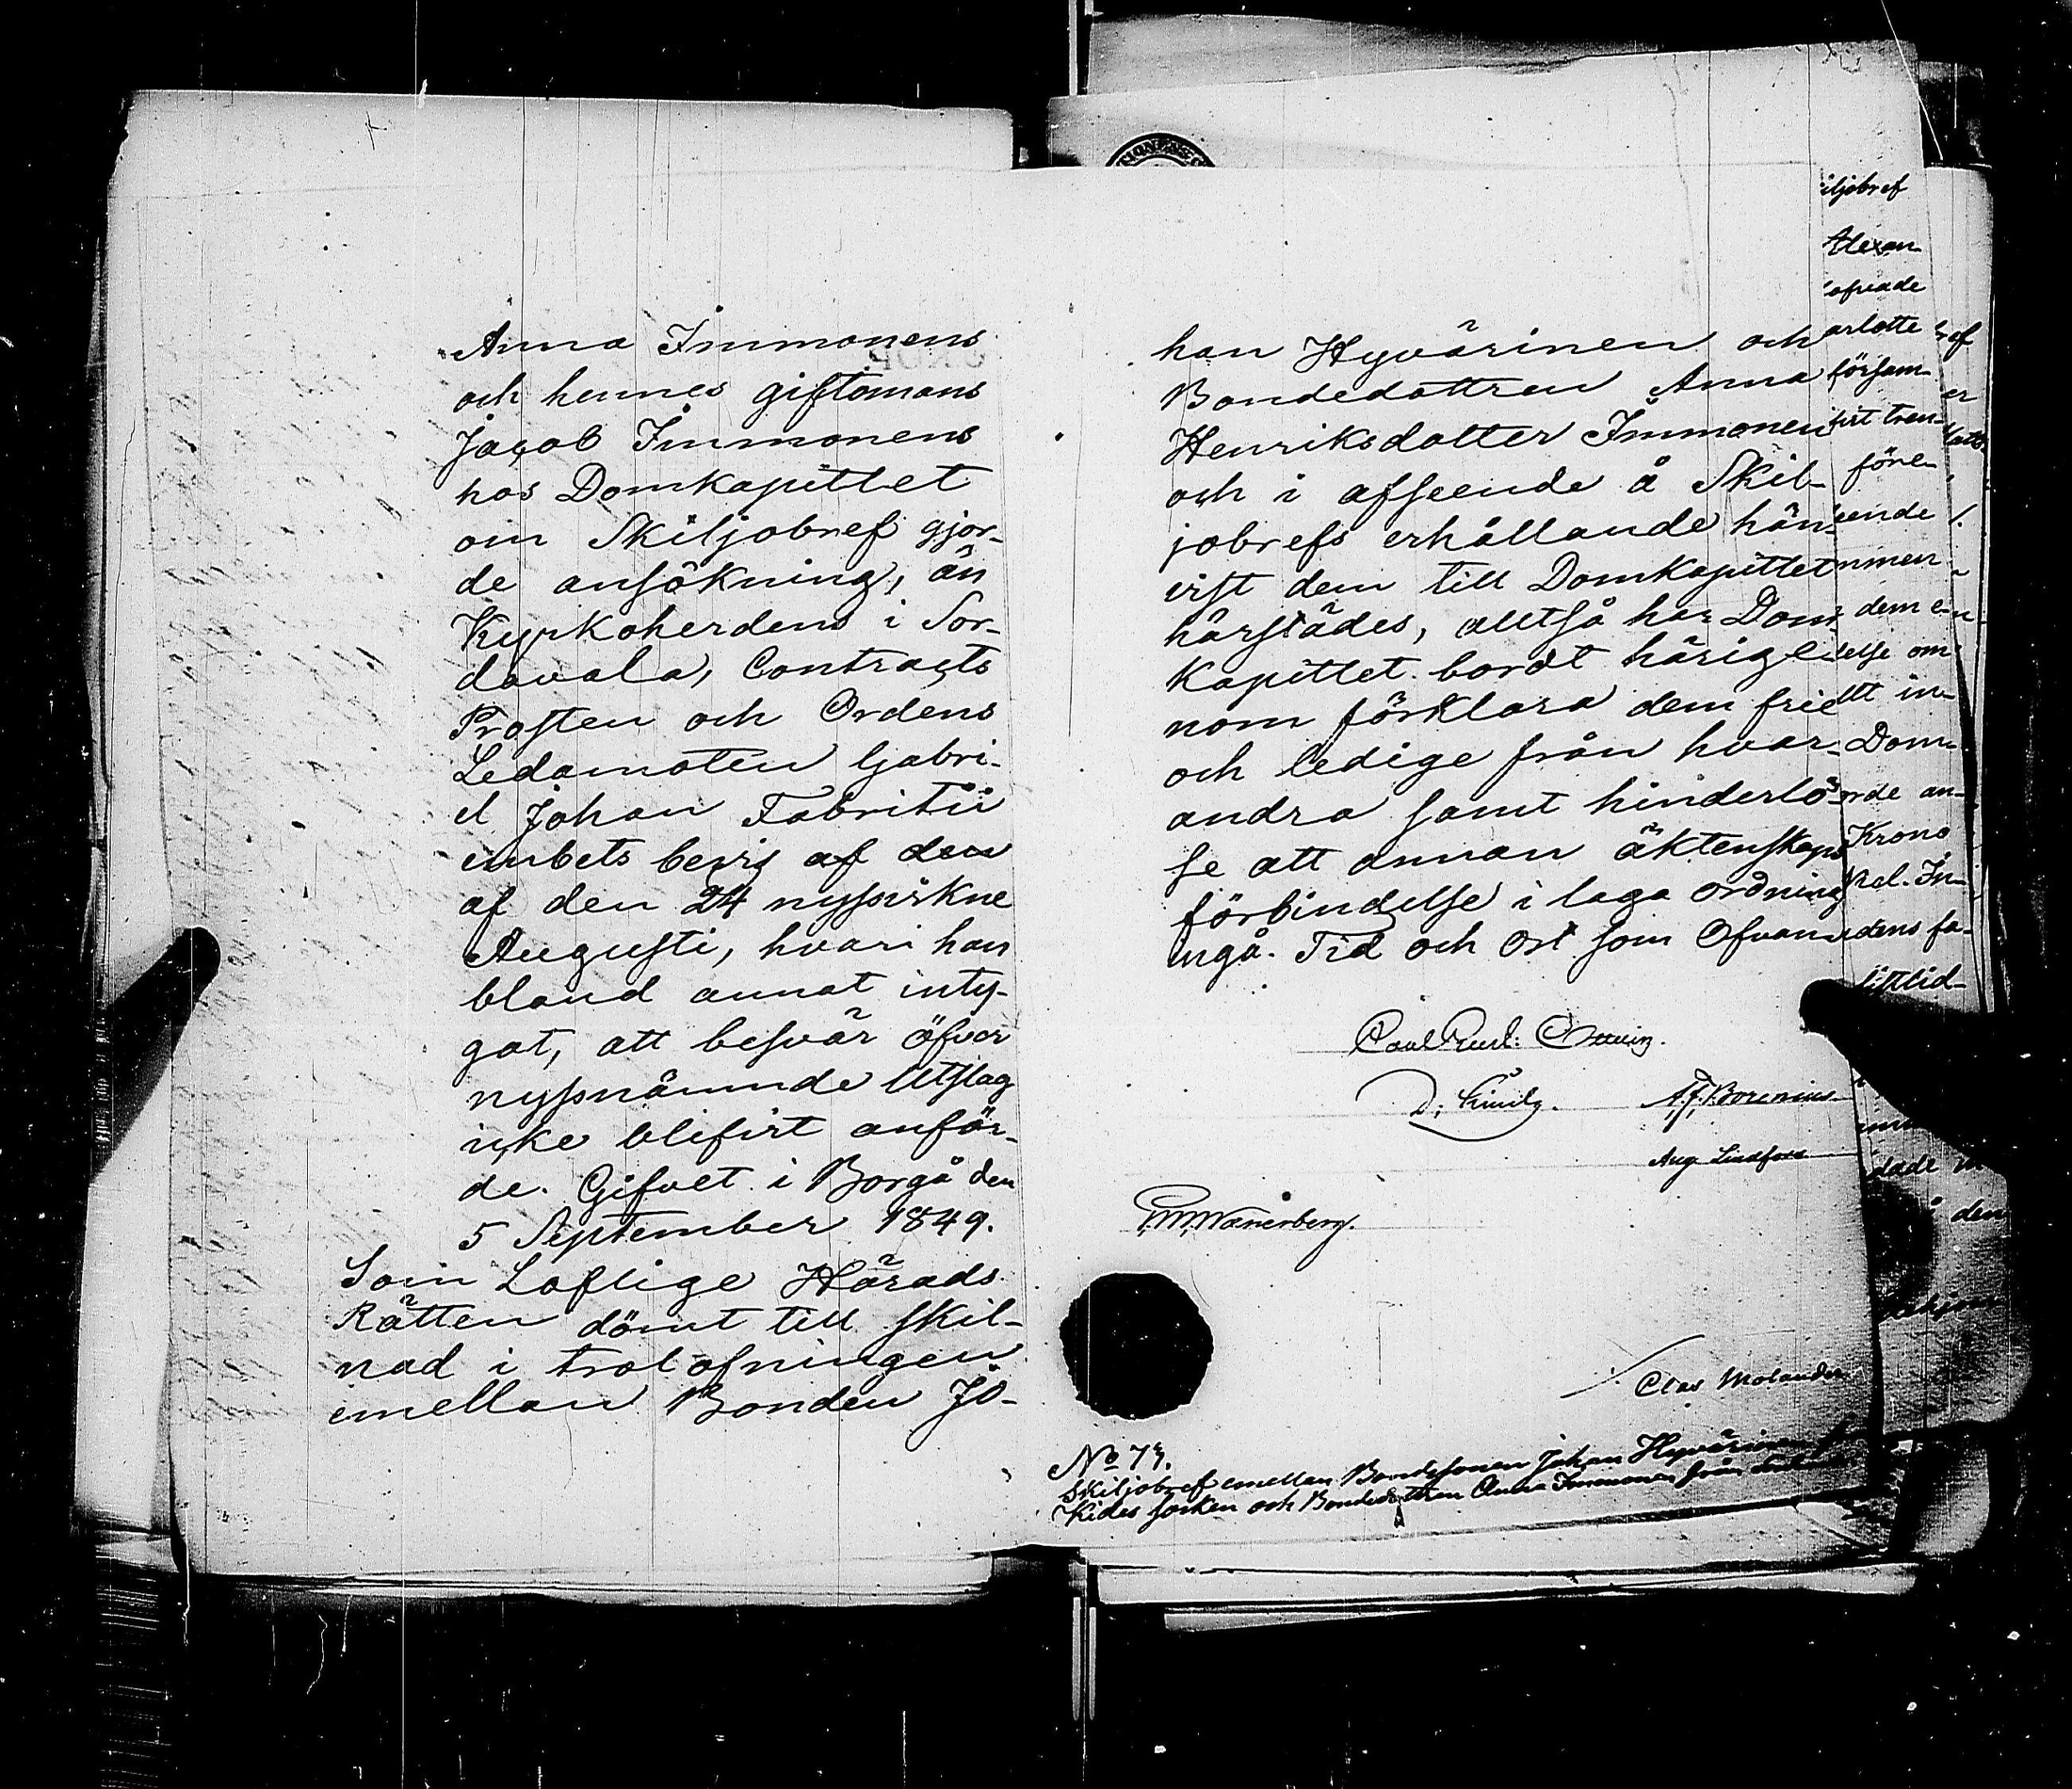 Anna Immonens
och hennes giftomans
Jacob Immonens
hos Domkapittlet
om Skiljobref gjor-
de ansökning, än
Kyrkoherdens i Sor-
davala, Contracts
Prosten och Ordens
Ledamoten Gabri-
el Johan Fabritii
embets bevis af den
af den 24 nyssvikne
Augusti, hvari han
bland annat inty-
gat, att besvär öfver
nyssnämnde Utslag
icke blifvit anför-
de. Gifvet i Borgå den
5 September 1849.
Som Loflige Härads
Rätten dömt till skil-
nad i trolofningen
emellan Bonden Jo-
han Hyvärinen och
Bondedottren Anna
Henriksdotter Immonen
och i afseende å Skil-
jobrefs erhållande hän-
vist dem till Domkapittlet
härstädes, alltså har Dom-
kapittlet bordt härige-
nom förklara dem frie
och ledige från hvar-
andra samt hinderlö-
se att annan äktenskaps
förbindelse i laga ordning
ingå. Tid och Ort som Ofvan.
A.J. Borenius
Aug Lindfors
Clas Molander
No 73.
Skiljobref emellan Bondesonen Johan Hyvärinen
Kides socken och Bondedottren Anna Immonen från
iljobref
Alexan-
lofvade
arlotte
försam-
vit tren-
före-
eende
mmen
dem e-
delse om
tt in-
Dom-
orde an-
Krono
dens fa-
dade
den